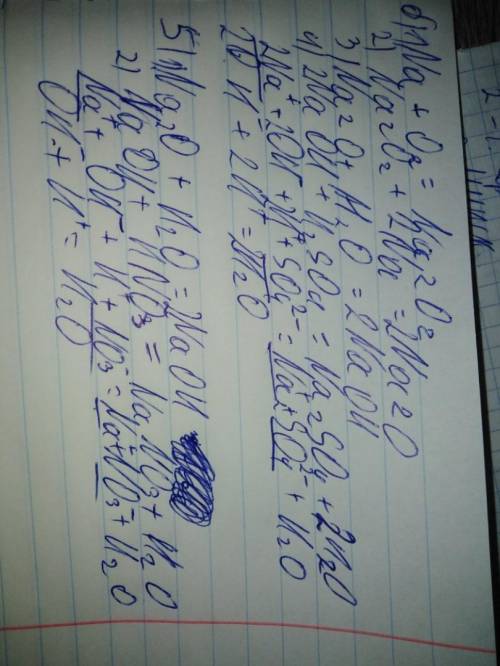 б) 1) Na + O2 = Na2O2
2) Na2O2 + 2Na = 2Na2O
3) Na2O + H2O = 2NaOH
4) 2NaOH + H2SO4 = Na2SO4 + 2H2O
2Na⁺ + 2OH⁻ + 2H⁺ + SO4²⁻ = Na⁺ + SO4²⁻ + H2O
2OH⁻ + 2H⁺ = 2H2O
5) 1) Na2O + H2O = 2NaOH
2) NaOH + HNO3 = NaNO3 + H2O
Na⁺ + OH⁻ + H⁺ + NO3⁻ = Na⁺ + NO3⁻ + H2O
OH⁻ + H⁺ = H2O